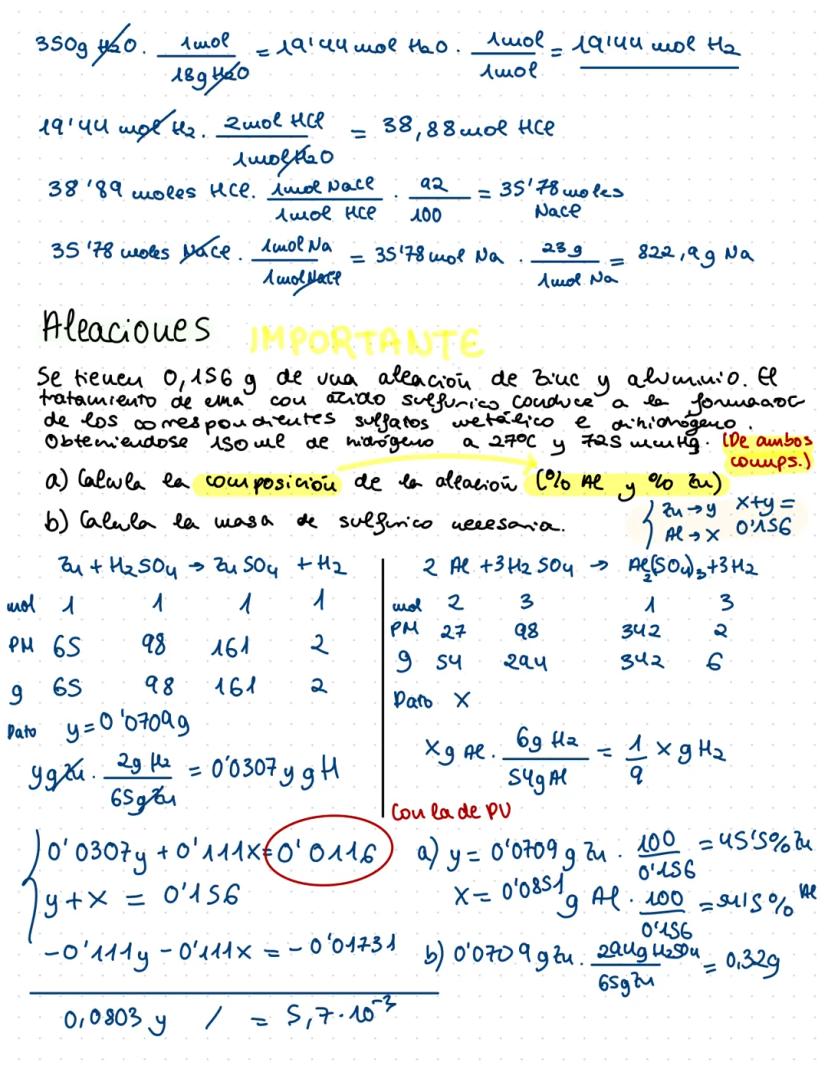 350g H2O · 1mol / 18g H2O = 19'44 mol H2O · 1mol / 1mol = 19'44 mol H2
19'44 mol H2 · 2mol HCl / 1mol H2O = 38,88mol HCl
38'89 moles HCl · 1mol NaCl / 1mol HCl · 92 / 100 = 35'78 moles NaCl
35'78 moles NaCl · 1mol Na / 1mol NaCl = 35'78 mol Na · 23g / 1mol Na = 822,9g Na
Aleaciones IMPORTANTE
Se tienen 0,156 g de una aleación de Zinc y aluminio. El
tratamiento de ella con ácido sulfurico conduce a la
de los correspondientes sulfatos metálico e dihidrógeno.
Obteniendose 150ml de hidrógeno a 27ºC y 725 mmHg. (De ambos
comps.)
a) Calcula la composición de la aleación (% Al y % Zn)
b) Calcula la masa de sulfurico necesaria.
Zn → y x+y =
Al → x 0'156
Zn + H2SO4 → ZnSO4 + H2
mol 1 1 1 1
PM 65 98 161 2
g 65 98 161 2
Dato y=0'0709g
yg Zn · 2g H2 / 65g Zn = 0'0307 y g H
2 Al + 3H2SO4 → Al2(SO4)3 + 3H2
mol 2 3 1 3
PM 27 98 342 2
g 54 294 342 6
Dato x
xg Al · 6g H2 / 54g Al = 1 / 9 x g H2
Con la de PV
0'0307y + 0'111x = 0'0116
y + x = 0'156
-0'111y - 0'111x = -0'01731
0,0803 y / = 5,7·10⁻³
a) y = 0'0709 g Zn · 100 / 0'156 = 45'5% Zn
x = 0'0851 g Al · 100 / 0'156 = 54'5% Al
b) 0'0709g Zn · 294g H2SO4 / 65g Zn = 0,32g